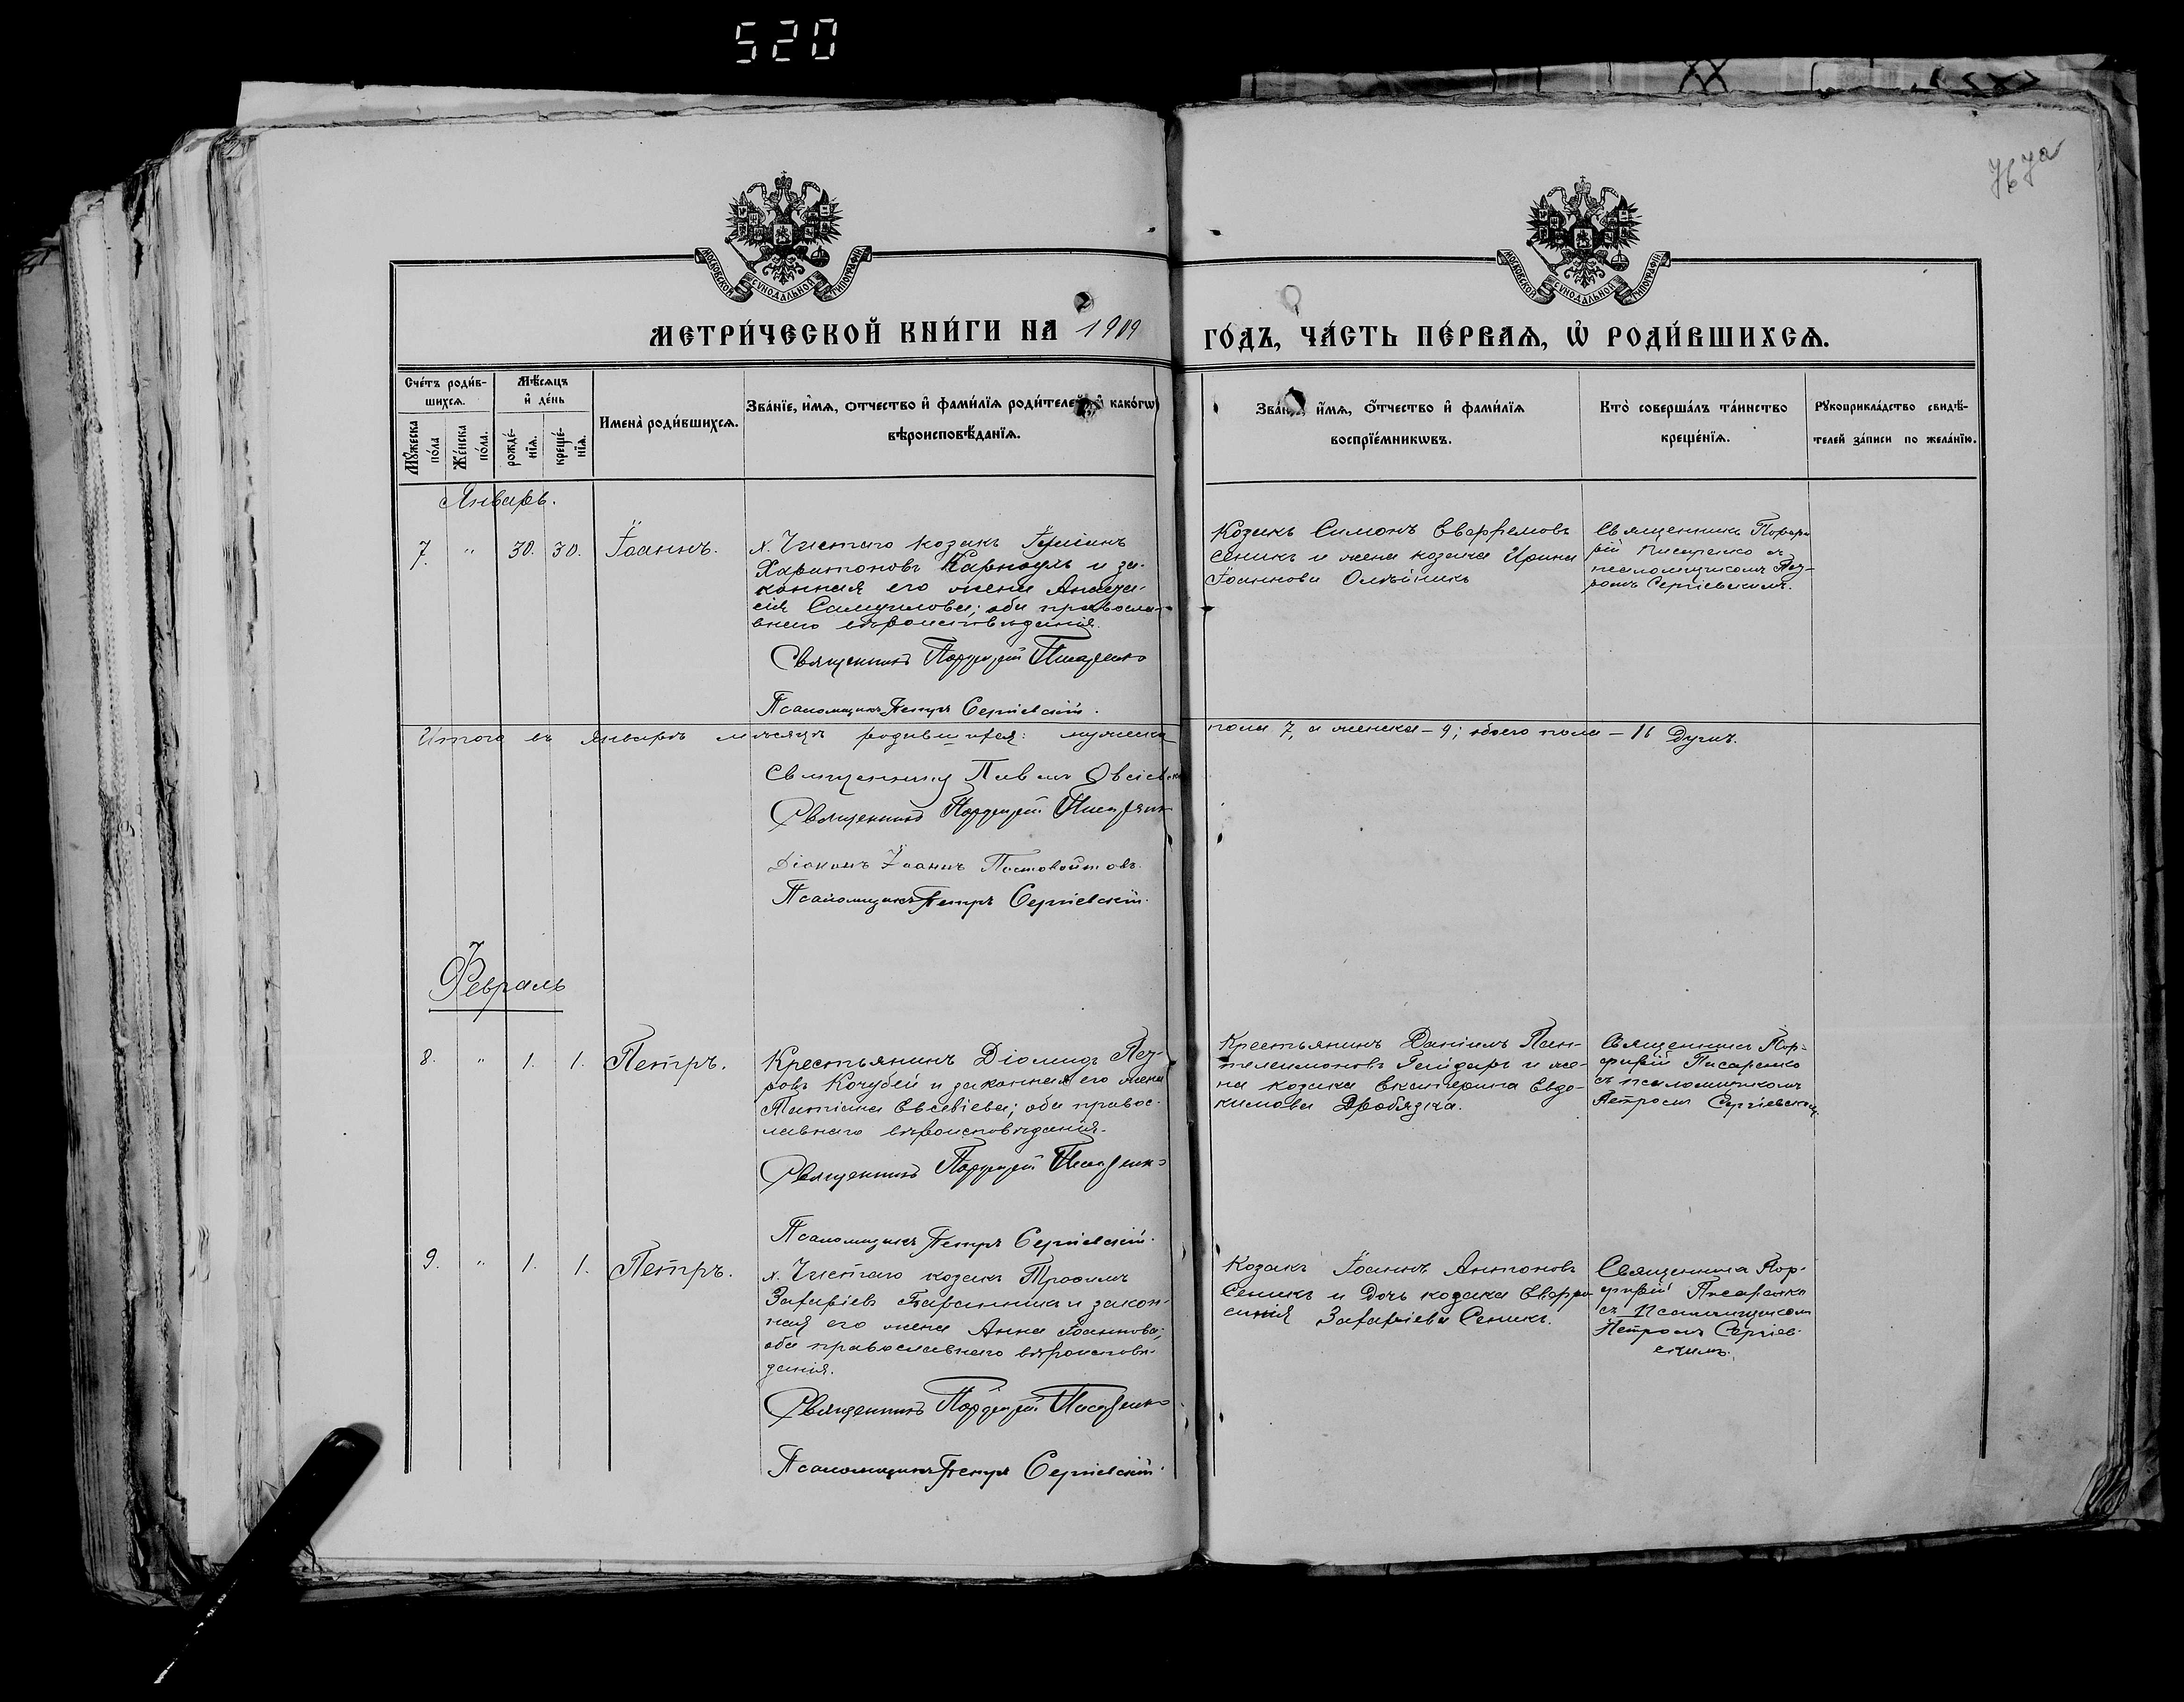 520
767а
МОСКОВСКОЙ СУНОДАЛЬНОЙ ТИПОГРАФІИ
МОСКОВСКОЙ СУНОДАЛЬНОЙ ТИПОГРАФІИ
МЕТРИ́ЧЕСКОЙ КНИ́ГИ НА 1909 ГО́ДЪ, ЧА́СТЬ ПЕ́РВАѦ, Ѡ РОДИ́ВШИХСѦ.
Сче́тъ роди́в-
шихсѧ.
Мѣ́сѧцъ
и҆ де́нь
Мꙋ́жеска по́ла
Же́нска по́ла.
рожде́-нїѧ.
креще́-нїѧ.
И҆мена̀ роди́вшихсѧ.
Зва́нїе, и҆́мѧ, ѻ҆́тчество и҆ фами́лїѧ роди́телей, и҆ како́гѡ
вѣроисповѣ́данїѧ.
Зва́нїе, и҆́мѧ, ѻ҆́тчество и҆ фами́лїѧ
воспрїе́мникѡвъ.
Кто̀ соверша́лъ та́инство
креще́нїѧ.
Рꙋкоприкла́дство свидѣ́-
телей за́писи по жела́нїю.
Январь.
7. " 30. 30. Іоаннъ.
х. Чистаго козакъ
Харитоновъ и за-
конная его жена Анаста-
сія Самуилова; оба правосла-
внаго вѣроисповѣданія.
Священникъ Порфирій Писаренко
Псаломщикъ Петръ Сергіевскій.
Козакъ Симонъ Евфимовъ
Сеникъ и жена козака Ирина
Іоаннова Олѣйникъ
Священникъ Порфи-
рій Писаренко съ
псаломщикомъ Пет-
ромъ Сергіевскимъ.
Итого въ Январѣ мѣсяцѣ родившихся: мужеска
пола 7, а женска – 9; обоего пола – 16 душъ.
Священникъ Павелъ
Священникъ Порфирій Писаренко
Діаконъ Іоаннъ Постовойтовъ.
Псаломщикъ Петръ Сергіевскій.
Февраль
8. " 1. 1. Петръ.
Крестьянинъ Діомидъ Пет-
ровъ Кочубей и законная его жена
Татіана Евсевіева; оба правос-
лавнаго вѣроисповѣданія.
Священникъ Порфирій Писаренко
Псаломщикъ Петръ Сергіевскій.
Крестьянинъ Даніилъ Пан-
телеимоновъ Гайдаръ и же-
на козака Екатерина Евдо-
кимова Дробязка.
Священникъ Пор-
фирій Писаренко
съ псаломщикомъ
Петромъ Сергіевскимъ.
9. " 1. 1. Петръ.
х. Чистаго козакъ Трофимъ
Захаріевъ и закон-
ная его жена Анна Іоаннова;
оба православнаго вѣроисповѣ-
данія.
Священникъ Порфирій Писаренко
Псаломщикъ Петръ Сергіевскій.
Козакъ Іоаннъ Антоновъ
Сеникъ и дочь козака Евфро
синія Захаріева Сеникъ.
Священникъ Пор-
фирій Писаренко
съ Псаломщикомъ
Петромъ Сергіев-
скимъ.